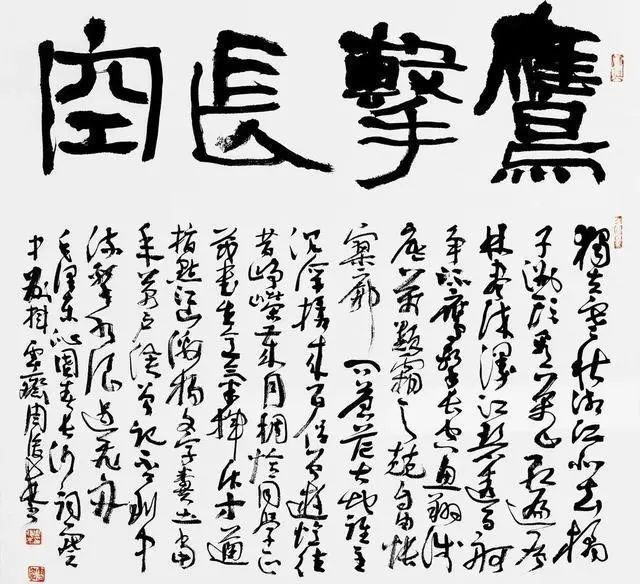 鷹擊長空
獨立寒秋湘江北去橘
子洲頭看萬山紅遍層
林盡染漫江碧透百舸
爭流鷹擊長空魚翔淺
底萬類霜天競自由悵
寥廓问蒼茫大地誰主
沉浮攜來百侶曾遊憶往
昔崢嶸歲月稠恰同學正
茂書生意氣揮斥方遒
指點江山激揚文字糞土當
年萬戶侯曾記否到中
流擊水浪遏飛舟
毛澤東沁園春長沙詞
周俊杰